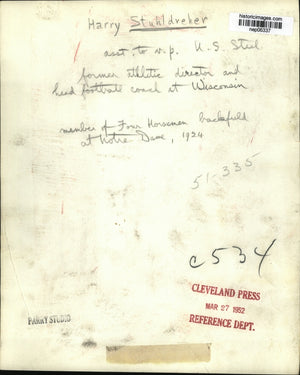 historicimages.com
nep06337
Harry Stuhldreher
asst. to v.p. U.S. Steel
former athletic director and
head football coach at Wisconsin
member of Four Horsemen backfield
at Notre Dame, 1924
51-335
c534
CLEVELAND PRESS
MAR 27 1952
REFERENCE DEPT.
PARRY STUDIO